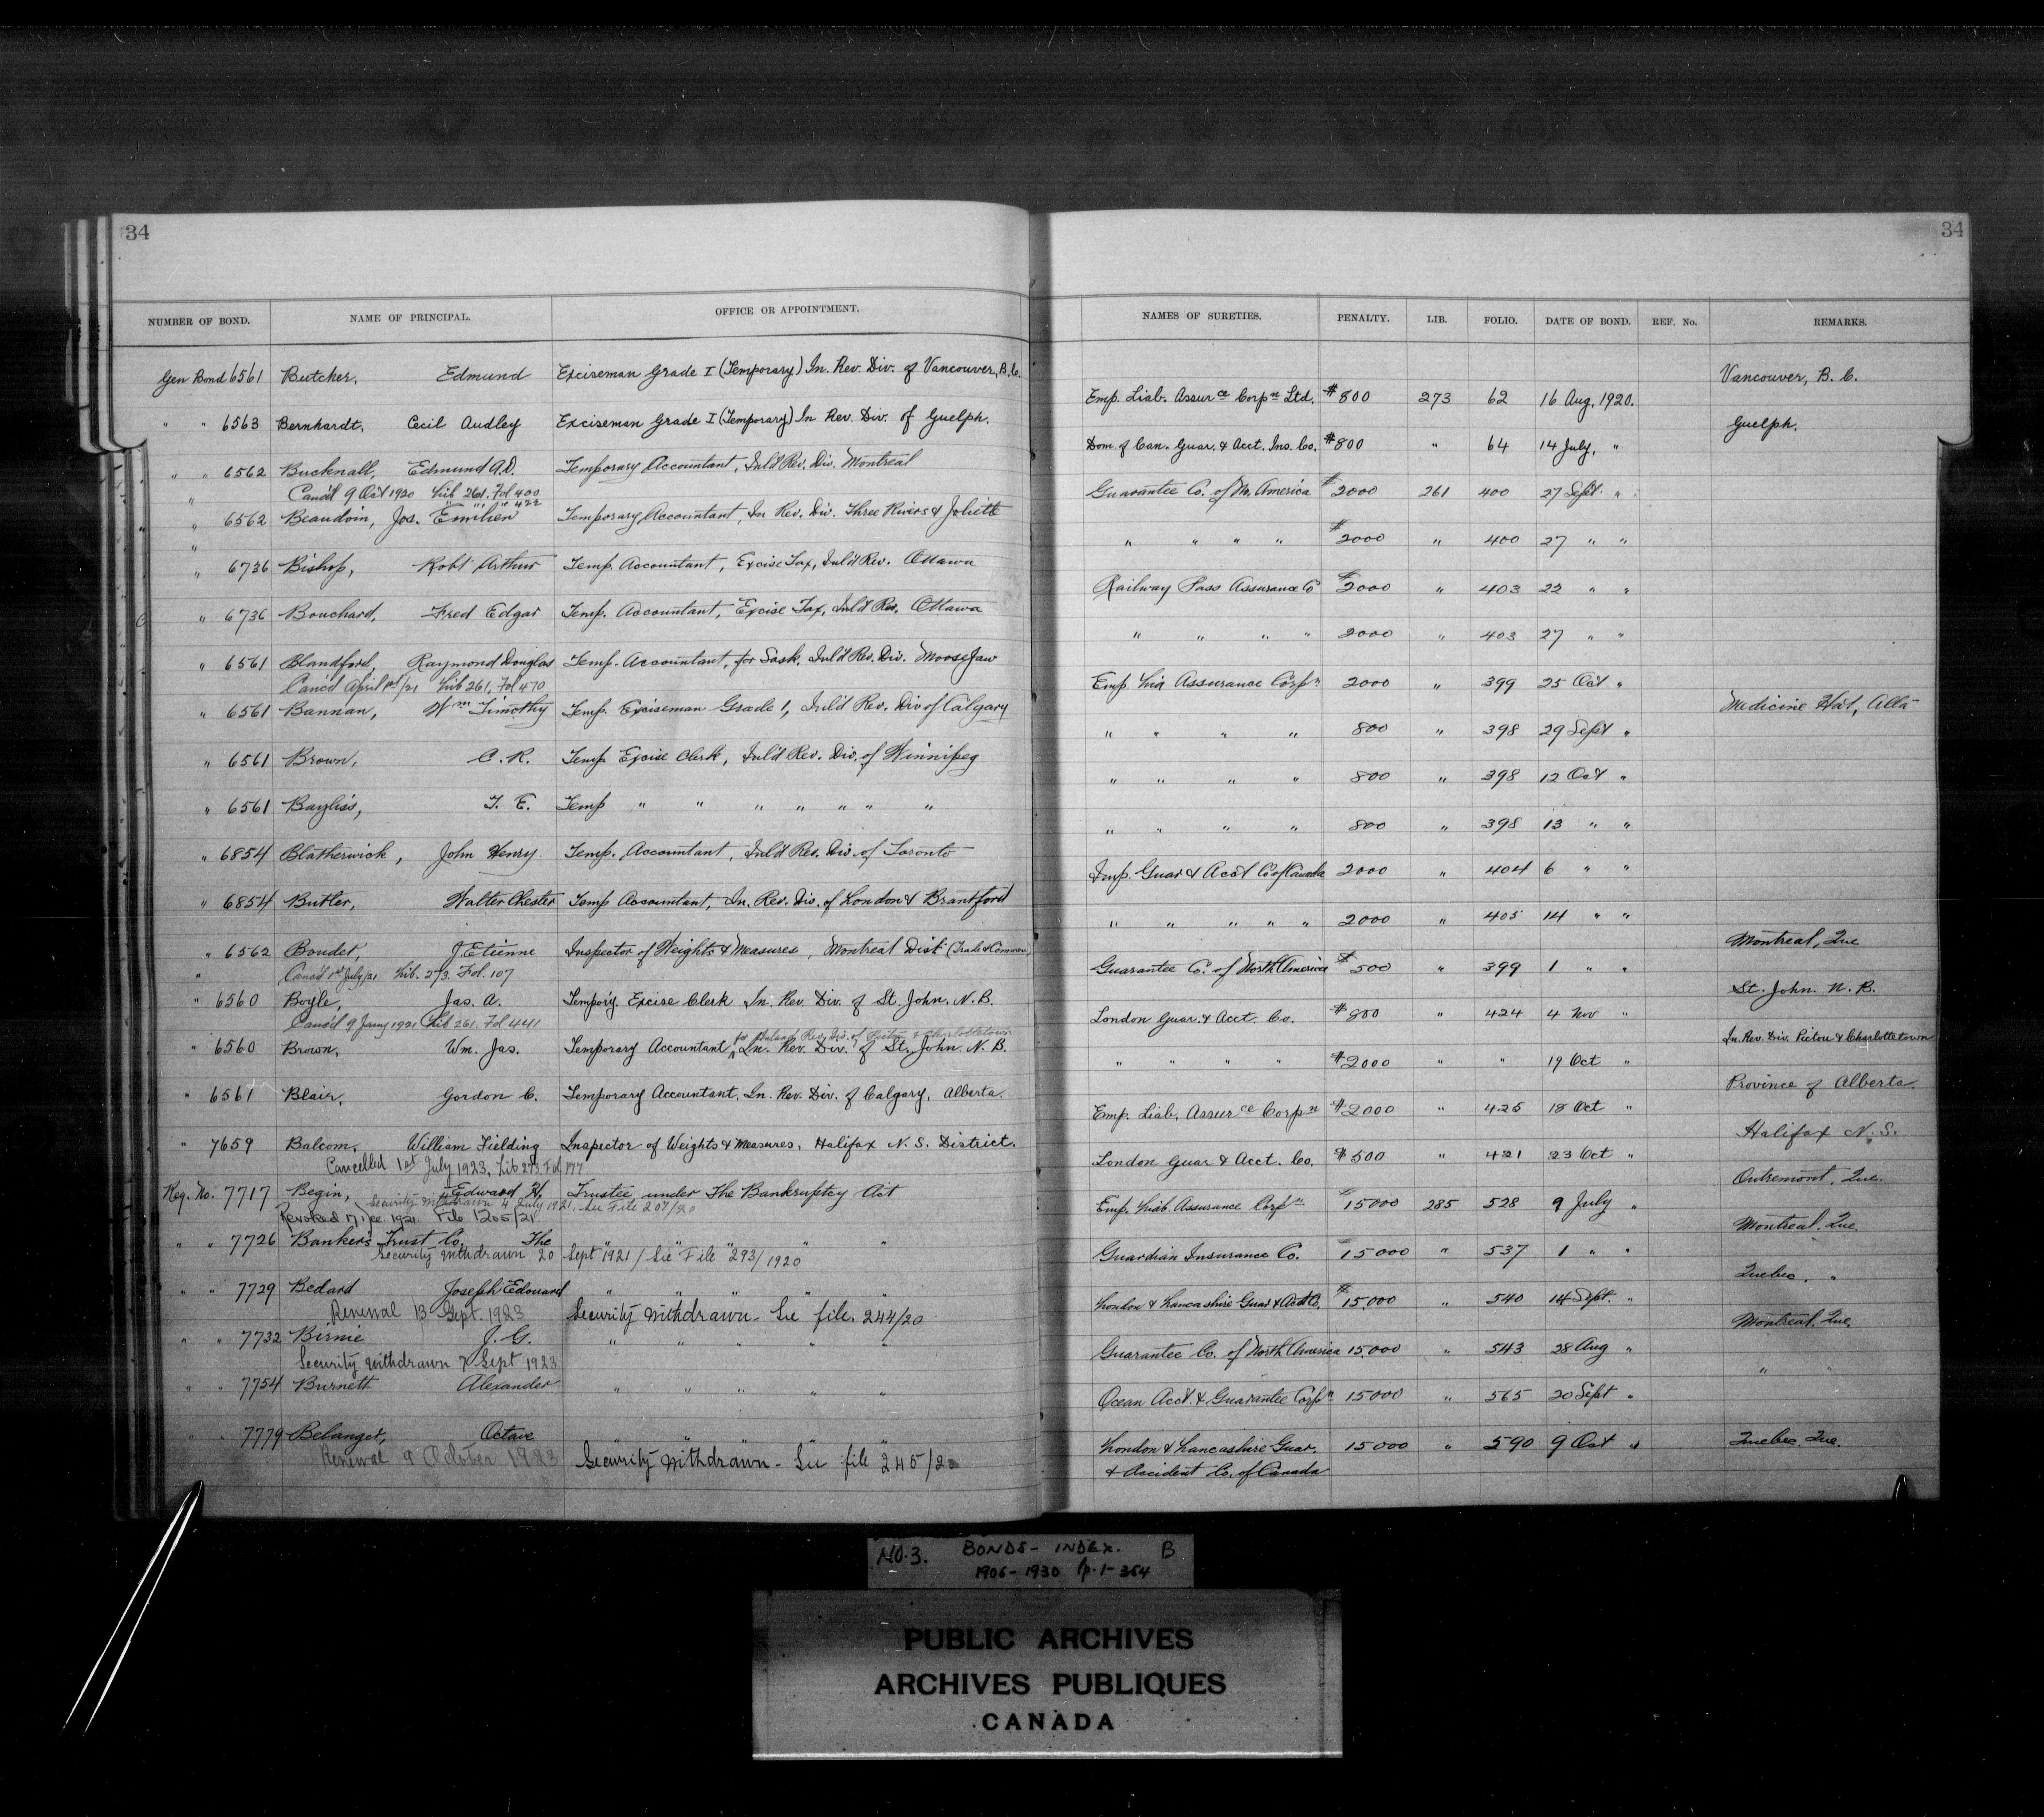 34
NUMBER OF BOND. NAME OF PRINCIPAL. OFFICE OR APPOINTMENT.
Gen Bond 6561 Butcher, Edmund Exciseman Grade I (Temporary) In. Rev. Div. of Vancouver, B.C.
" " 6563 Bernhardt, Cecil Audley Exciseman Grade I (Temporary) In Rev. Div. of Guelph.
" " 6562 Bucknall, Edmund A.D. Temporary Accountant, Inl'd Rev. Div. Montreal
" Canc'd 9 Oct 1920 Lib 261. Fol 400
" " 422
" 6562 Beaudoin, Jos. Emilien Temporary Accountant, In Rev. Div. Three Rivers & Joliette
"
" 6736 Bishop, Robt Arthur Temp. Accountant, Excise Tax, Inl'd Rev. Ottawa
" 6736 Bouchard, Fred Edgar Temp. Accountant, Excise Tax, Inl'd Rev. Ottawa
" 6561 Blandford, Raymond Douglas Temp. Accountant, for Sask. Inl'd Rev. Div. Moose Jaw
Canc'd April 1st/21 Lib 261, Fol 470
" 6561 Bannan, Wm Timothy Temp. Exciseman Grade 1, Inl'd Rev. Div of Calgary
" 6561 Brown, C. R. Temp Excise Clerk, Inl'd Rev. Div. of Winnipeg
" 6561 Bayliss, T. E. Temp " " " " " " "
" 6854 Blatherwick, John Henry Temp. Accountant, Inl'd Rev. Div. of Toronto
" 6854 Butler, Walter Chester Temp Accountant, In. Rev. Div. of London & Brantford
" 6562 Boudet, J. Etienne Inspector of Weights & Measures, Montreal Dist (Trade & Commerce)
" Canc'd 1st July/21 Lib. 273. Fol. 107
" 6560 Boyle, Jas. A. Tempo'y Excise Clerk In. Rev. Div. of St. John. N.B.
Canc'd 9 Jany 1921 Lib 261. Fol 441
for Inland Rev. Div. of Pictou & Charlottetown
" 6560 Brown, Wm. Jas. Temporary Accountant, In. Rev. Div. of St. John. N.B.
" 6561 Blair, Gordon C. Temporary Accountant. In. Rev. Div. of Calgary, Alberta.
" 7659 Balcom, William Fielding Inspector of Weights & Measures, Halifax N.S. District.
Cancelled 1st July 1923, Lib 273 Fol 177
Reg. No. 7717 Begin, Edward H, Trustee under The Bankruptcy Act
Security withdrawn 4 July 1921, See File 207/20
Revoked 17 Dec. 1921. File 1205/21
" " 7726 Bankers Trust Co. The " " " " "
Security withdrawn 20 Sept 1921 / See File 293/1920
" " 7729 Bedard Joseph Edouard " " " " "
Renewal 13 Sept. 1923 Security withdrawn - See file. 244/20
" " 7732 Birnie J. G. " " " " "
Security withdrawn 7 Sept 1923
" " 7754 Burnett Alexander " " " " "
" " 7779 Belanger, Octave " " " " "
Renewal 9 October 1923 Security withdrawn - See file 245/20
34
NAMES OF SURETIES. PENALTY. LIB. FOLIO. DATE OF BOND. REF. No. REMARKS.
Vancouver, B.C.
Emp. Liab. Assurce Corpn Ltd. $800 273 62 16 Aug, 1920.
Guelph.
Dom. of Can. Guar. & Acct. Ins. Co. $800 " 64 14 July, "
Guarantee Co. of N. America $2000 261 400 27 Sept. "
" " " " $2000 " 400 27 " "
Railway Pass Assurance Co $2000 " 403 22 " "
" " " " 2000 " 403 27 " "
Emp. Lia Assurance Corpn 2000 " 399 25 Oct "
Medicine Hat, Alta
" " " " 800 " 398 29 Sept "
" " " " 800 " 398 12 Oct "
" " " " 800 " 398 13 " "
Imp. Guar & Acct Co of Canada 2000 " 404 6 " "
" " " " " 2000 " 405 14 " "
Montreal, Que
Guarantee Co. of North America $500 " 399 1 " "
St. John. N.B.
London Guar. & Acct. Co. $800 " 424 4 Nov "
In. Rev. Div. Pictou & Charlottetown
" " " " $2000 " " 19 Oct "
Province of Alberta
Emp. Liab. Assurce Corpn $2000 " 425 18 Oct "
Halifax N.S.
London Guar & Acct. Co. $500 " 421 23 Oct "
Outremont, Que.
Emp. Liab. Assurance Corpn 15000 285 528 9 July "
Montreal, Que.
Guardian Insurance Co. 15000 " 537 1 " "
Quebec, "
London & Lancashire Guar & Acct Co. $15,000 " 540 14 Sept. "
Montreal, Que.
Guarantee Co. of North America 15,000 " 543 28 Aug "
" "
Ocean Acct. & Guarantee Corpn 15000 " 565 20 Sept "
London & Lancashire Guar. 15000 " 590 9 Oct " Quebec. Que.
& Accident Co. of Canada
NO. 3. BONDS - INDEX. B
1906-1930 p. 1-354
PUBLIC ARCHIVES
ARCHIVES PUBLIQUES
CANADA